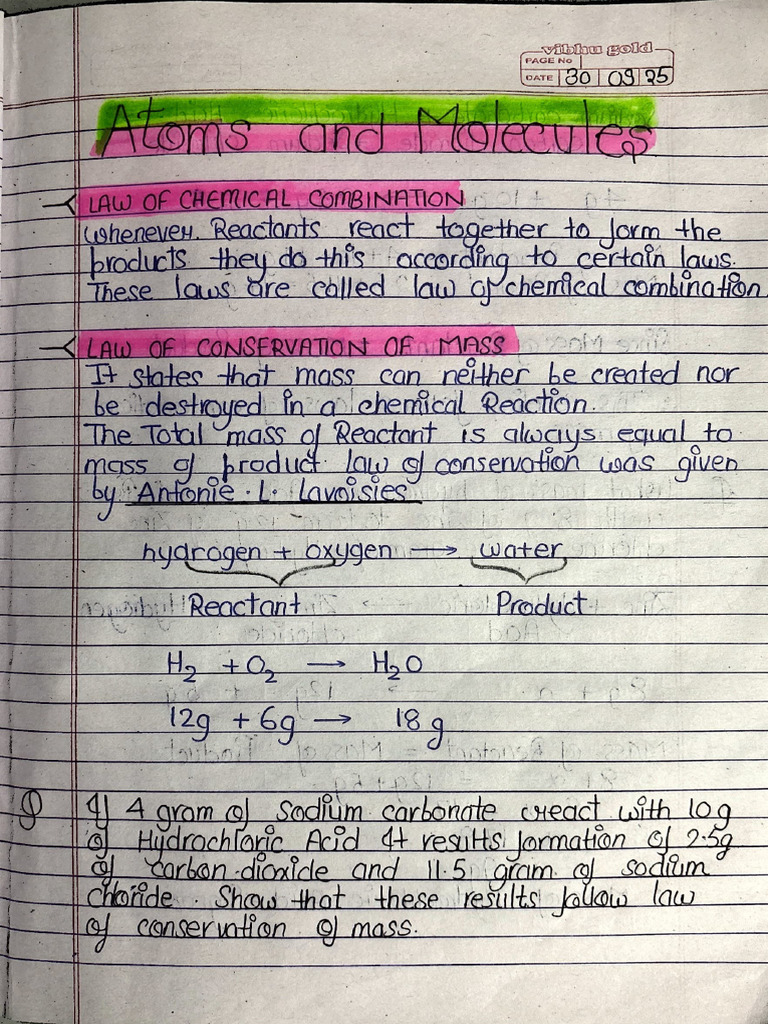 vibhu gold
PAGE No
DATE 30 09 25
Atoms and Molecules
LAW OF CHEMICAL COMBINATION
Whenever. Reactants react together to form the
products they do this according to certain laws.
These laws are called law of chemical combination
LAW OF CONSERVATION OF MASS
It states that mass can neither be created nor
be destroyed in a chemical Reaction.
The Total mass of Reactant is always equal to
mass of product law of conservation was given
by Antonie . L. Lavoisies
hydrogen + oxygen → water
Reactant Product
H₂ + O₂ → H₂O
12g + 6g → 18g
Q If 4 gram of sodium carbonate react with 10g
of Hydrochloric Acid It results formation of 2.5g
of carbon-dioxide and 11.5 gram of sodium
chloride. Show that these results follow law
of conservation of mass.